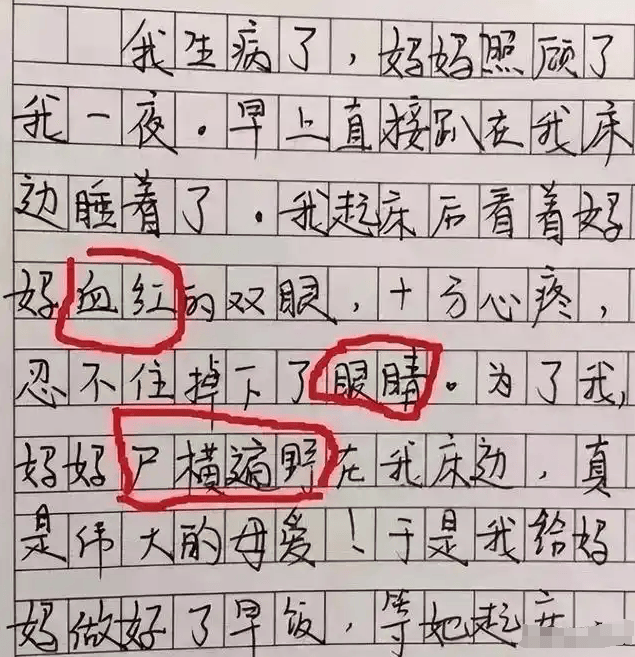 我生病了，妈妈照顾了
我一夜．早上直接趴在我床
边睡着了．我起床后看着妈
妈血红的双眼，十分心疼，
忍不住掉下了眼睛。为了我，
妈妈尸横遍野在我床边，真
是伟大的母爱！于是我给妈
妈做好了早饭，等她起床．